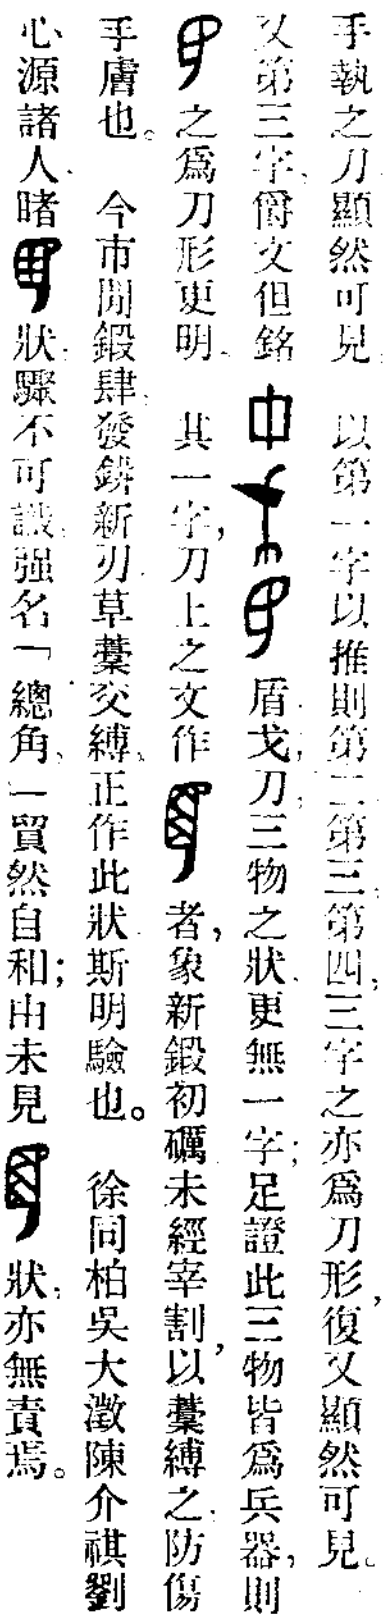 手執之刀顯然可見、以第一字以推則第二第三、第四、三字之亦爲刀形，復又顯然可見。
又第三字、爵文但銘盾、戈、刀、三物之狀、更無一字；足證此三物皆爲兵器，則
之爲刀形更明、其一字，刀上之文作者，象新鍛初礪、未經宰割，以藳縛之、防傷
手膚也。今市閒鍛肆、發鉼新刃、草藳交縛、正作此狀、斯明驗也。徐同柏吳大澂陳介祺劉
心源諸人、睹狀、驟不可識、强名「總角、」貿然自和；由未見狀、亦無責焉。